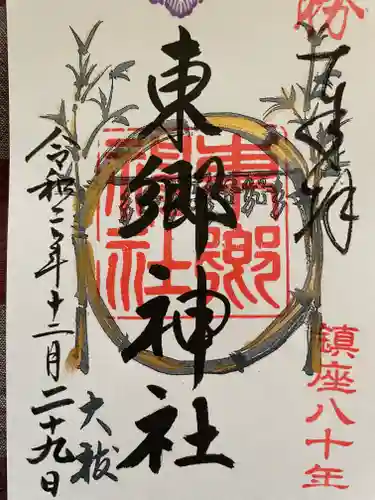 勝
奉拝
鎮座八十年
東郷神社
東郷神社
令和二年十二月二十九日
大祓